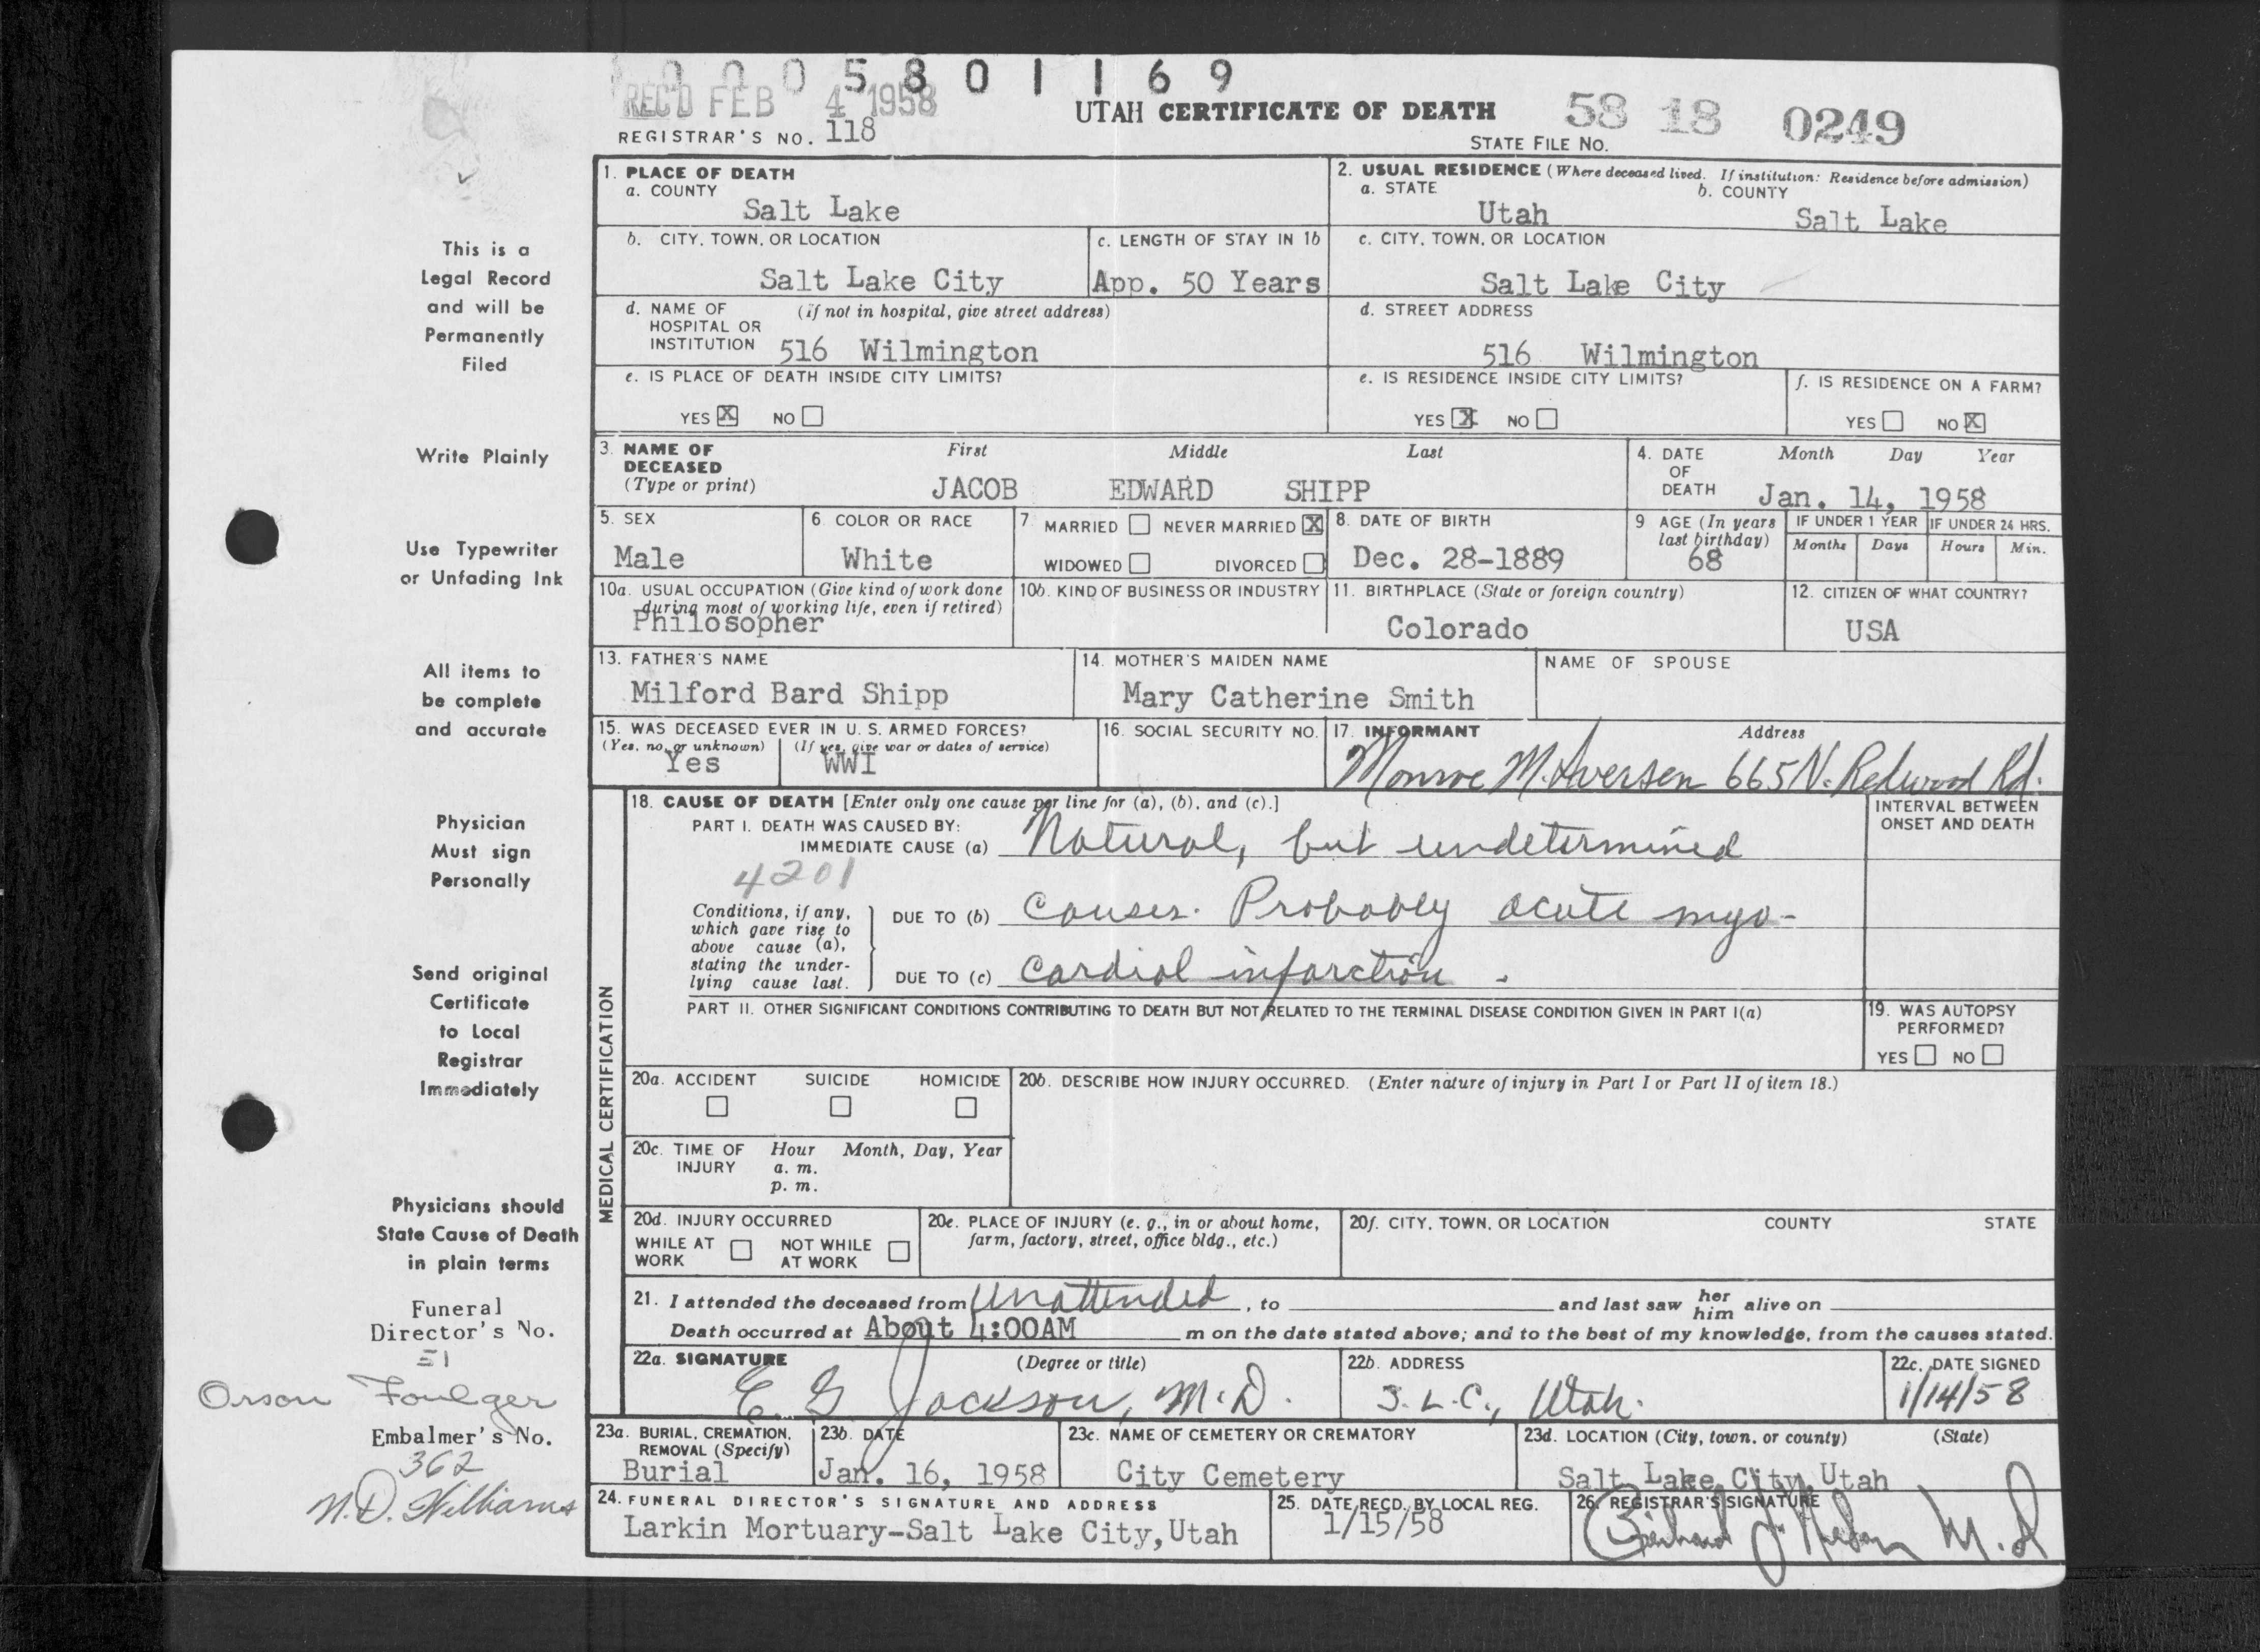 0 0 0 5 8 0 1 1 6 9
REC'D FEB 4 1958
UTAH CERTIFICATE OF DEATH
58 18 0249
REGISTRAR'S NO. 118
STATE FILE NO.
This is a
Legal Record
and will be
Permanently
Filed
Write Plainly
Use Typewriter
or Unfading Ink
All items to
be complete
and accurate
Physician
Must sign
Personally
Send original
Certificate
to Local
Registrar
Immediately
Physicians should
State Cause of Death
in plain terms
Funeral
Director's No.
51
Orson Foulger
Embalmer's No.
362
N.D. Williams
1. PLACE OF DEATH
a. COUNTY
Salt Lake
2. USUAL RESIDENCE (Where deceased lived. If institution: Residence before admission)
a. STATE b. COUNTY
Utah Salt Lake
b. CITY, TOWN, OR LOCATION
Salt Lake City
c. LENGTH OF STAY IN 1b
App. 50 Years
c. CITY, TOWN, OR LOCATION
Salt Lake City
d. NAME OF (if not in hospital, give street address)
HOSPITAL OR
INSTITUTION 516 Wilmington
d. STREET ADDRESS
516 Wilmington
e. IS PLACE OF DEATH INSIDE CITY LIMITS?
YES X NO
e. IS RESIDENCE INSIDE CITY LIMITS?
YES X NO
f. IS RESIDENCE ON A FARM?
YES NO X
3. NAME OF First Middle Last
DECEASED
(Type or print) JACOB EDWARD SHIPP
4. DATE Month Day Year
OF
DEATH Jan. 14, 1958
5. SEX
Male
6. COLOR OR RACE
White
7. MARRIED NEVER MARRIED X
WIDOWED DIVORCED
8. DATE OF BIRTH
Dec. 28-1889
9 AGE (In years
last birthday)
68
IF UNDER 1 YEAR IF UNDER 24 HRS.
Months Days Hours Min.
10a. USUAL OCCUPATION (Give kind of work done
during most of working life, even if retired)
Philosopher
10b. KIND OF BUSINESS OR INDUSTRY
11. BIRTHPLACE (State or foreign country)
Colorado
12. CITIZEN OF WHAT COUNTRY?
USA
13. FATHER'S NAME
Milford Bard Shipp
14. MOTHER'S MAIDEN NAME
Mary Catherine Smith
NAME OF SPOUSE
15. WAS DECEASED EVER IN U. S. ARMED FORCES?
(Yes, no, or unknown) (If yes, give war or dates of service)
Yes WWI
16. SOCIAL SECURITY NO.
17. INFORMANT Address
Monroe M. Iversen 665 N. Redwood Rd.
MEDICAL CERTIFICATION
18. CAUSE OF DEATH [Enter only one cause per line for (a), (b), and (c).]
INTERVAL BETWEEN
ONSET AND DEATH
PART I. DEATH WAS CAUSED BY:
IMMEDIATE CAUSE (a) Natural, but undetermined
4201
Conditions, if any,
which gave rise to
above cause (a),
stating the under-
lying cause last.
DUE TO (b) causes. Probably acute myo-
DUE TO (c) cardial infarction.
PART II. OTHER SIGNIFICANT CONDITIONS CONTRIBUTING TO DEATH BUT NOT RELATED TO THE TERMINAL DISEASE CONDITION GIVEN IN PART I(a)
19. WAS AUTOPSY
PERFORMED?
YES NO
20a. ACCIDENT SUICIDE HOMICIDE
20b. DESCRIBE HOW INJURY OCCURRED. (Enter nature of injury in Part I or Part II of item 18.)
20c. TIME OF Hour Month, Day, Year
INJURY a. m.
p. m.
20d. INJURY OCCURRED
WHILE AT NOT WHILE
WORK AT WORK
20e. PLACE OF INJURY (e. g., in or about home,
farm, factory, street, office bldg., etc.)
20f. CITY, TOWN, OR LOCATION COUNTY STATE
21. I attended the deceased from Unattended, to and last saw her him alive on
Death occurred at About 4:00AM m on the date stated above; and to the best of my knowledge, from the causes stated.
22a. SIGNATURE (Degree or title)
E. G Jackson, M.D.
22b. ADDRESS
S.L.C., Utah.
22c. DATE SIGNED
1/14/58
23a. BURIAL, CREMATION,
REMOVAL (Specify)
Burial
23b. DATE
Jan. 16, 1958
23c. NAME OF CEMETERY OR CREMATORY
City Cemetery
23d. LOCATION (City, town, or county) (State)
Salt Lake City Utah
24. FUNERAL DIRECTOR'S SIGNATURE AND ADDRESS
Larkin Mortuary-Salt Lake City, Utah
25. DATE RECD. BY LOCAL REG.
1/15/58
26. REGISTRAR'S SIGNATURE
M.D